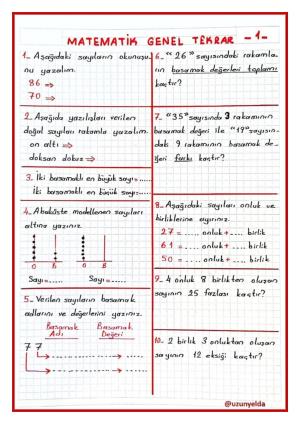 MATEMATİK GENEL TEKRAR -1-
1- Aşağıdaki sayıların okunuşu-
nu yazalım.
86 ⇒
70 ⇒
2- Aşağıda yazılışları verilen
doğal sayıları rakamla yazalım.
on altı ⇒
doksan dokuz ⇒
3- İki basamaklı en büyük sayı=.....
İki basamaklı en küçük sayı=.....
4- Abaküste modellenen sayıları
altına yazınız.
O B O B
Sayı=..... Sayı=.....
5- Verilen sayıların basamak
adlarını ve değerlerini yazınız.
Basamak Adı Basamak Değeri
77
6- "26" sayısındaki rakamla-
rın basamak değerleri toplamı
kaçtır?
7- "35" sayısında 3 rakamının
basamak değeri ile "19" sayısın-
daki 9 rakamının basamak de-
ğeri farkı kaçtır?
8- Aşağıdaki sayıları onluk ve
birliklerine ayırınız.
27 = ..... onluk + ..... birlik
61 = ..... onluk + ..... birlik
50 = ..... onluk + ..... birlik
9- 4 onluk 8 birlikten oluşan
sayının 25 fazlası kaçtır?
10- 2 birlik 3 onluktan oluşan
sayının 12 eksiği kaçtır?
@uzunyelda